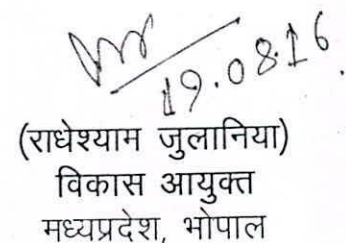 19.08.16
(राधेश्याम जुलानिया)
विकास आयुक्त
मध्यप्रदेश, भोपाल